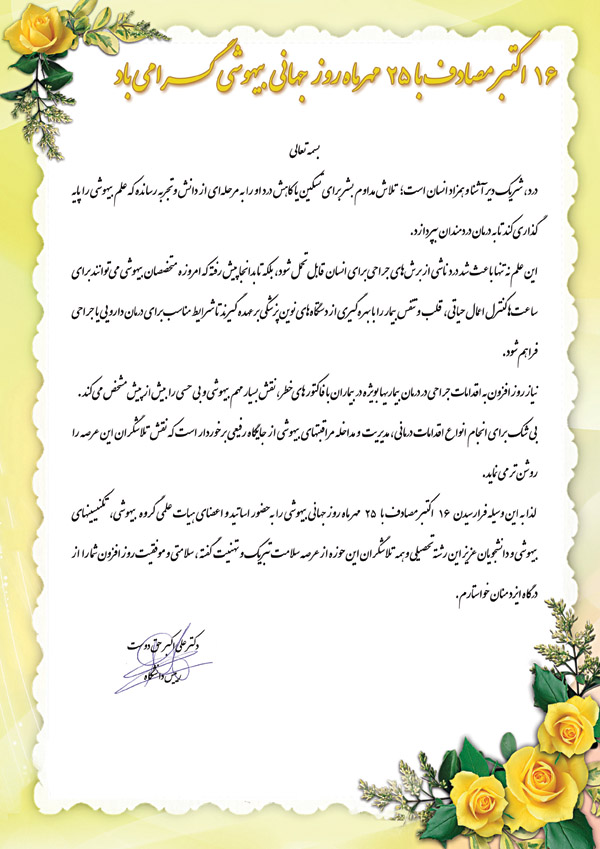 ۱۶ اکتبر مصادف با ۲۵ مهرماه روز جهانی بیهوشی گرامی باد
بسمه تعالی
درد، شریک دیر آشنا و همزاد انسان است؛ تلاش مداوم بشر برای تسکین یا کاهش درد او را به مرحله ای از دانش و تجربه رسانده که علم بیهوشی را پایه
گذاری کند تا به درمان دردمندان بپردازد.
این علم نه تنها باعث شد درد ناشی از برش های جراحی برای انسان قابل تحمل شود، بلکه تا بدانجا پیش رفته که امروزه متخصصان بیهوشی می توانند برای
ساعت ها کنترل اعمال حیاتی، قلب و تنفس بیمار را با بهره گیری از دستگاه های نوین پزشکی بر عهده گیرند تا شرایط مناسب برای درمان دارویی یا جراحی
فراهم شود.
نیاز روز افزون به اقدامات جراحی در درمان بیماریها بویژه در بیماران با فاکتورهای خطر، نقش بسیار مهم بیهوشی و بی حسی را بیش از پیش مشخص می کند.
بی شک برای انجام انواع اقدامات درمانی، مدیریت و مداخله مراقبتهای بیهوشی از جایگاه رفیعی برخوردار است که نقش تلاشگران این عرصه را
روشن تر می نماید.
لذا به این وسیله فرا رسیدن ۱۶ اکتبر مصادف با ۲۵ مهرماه روز جهانی بیهوشی را به حضور اساتید و اعضای هیات علمی گروه بیهوشی، تکنیسینهای
بیهوشی و دانشجویان عزیز این رشته تحصیلی و همه تلاشگران این حوزه از عرصه سلامت تبریک و تهنیت گفته، سلامتی و موفقیت روز افزون شما را از
درگاه ایزد منان خواستارم.
دکتر علی اکبر حق دوست
رییس دانشگاه